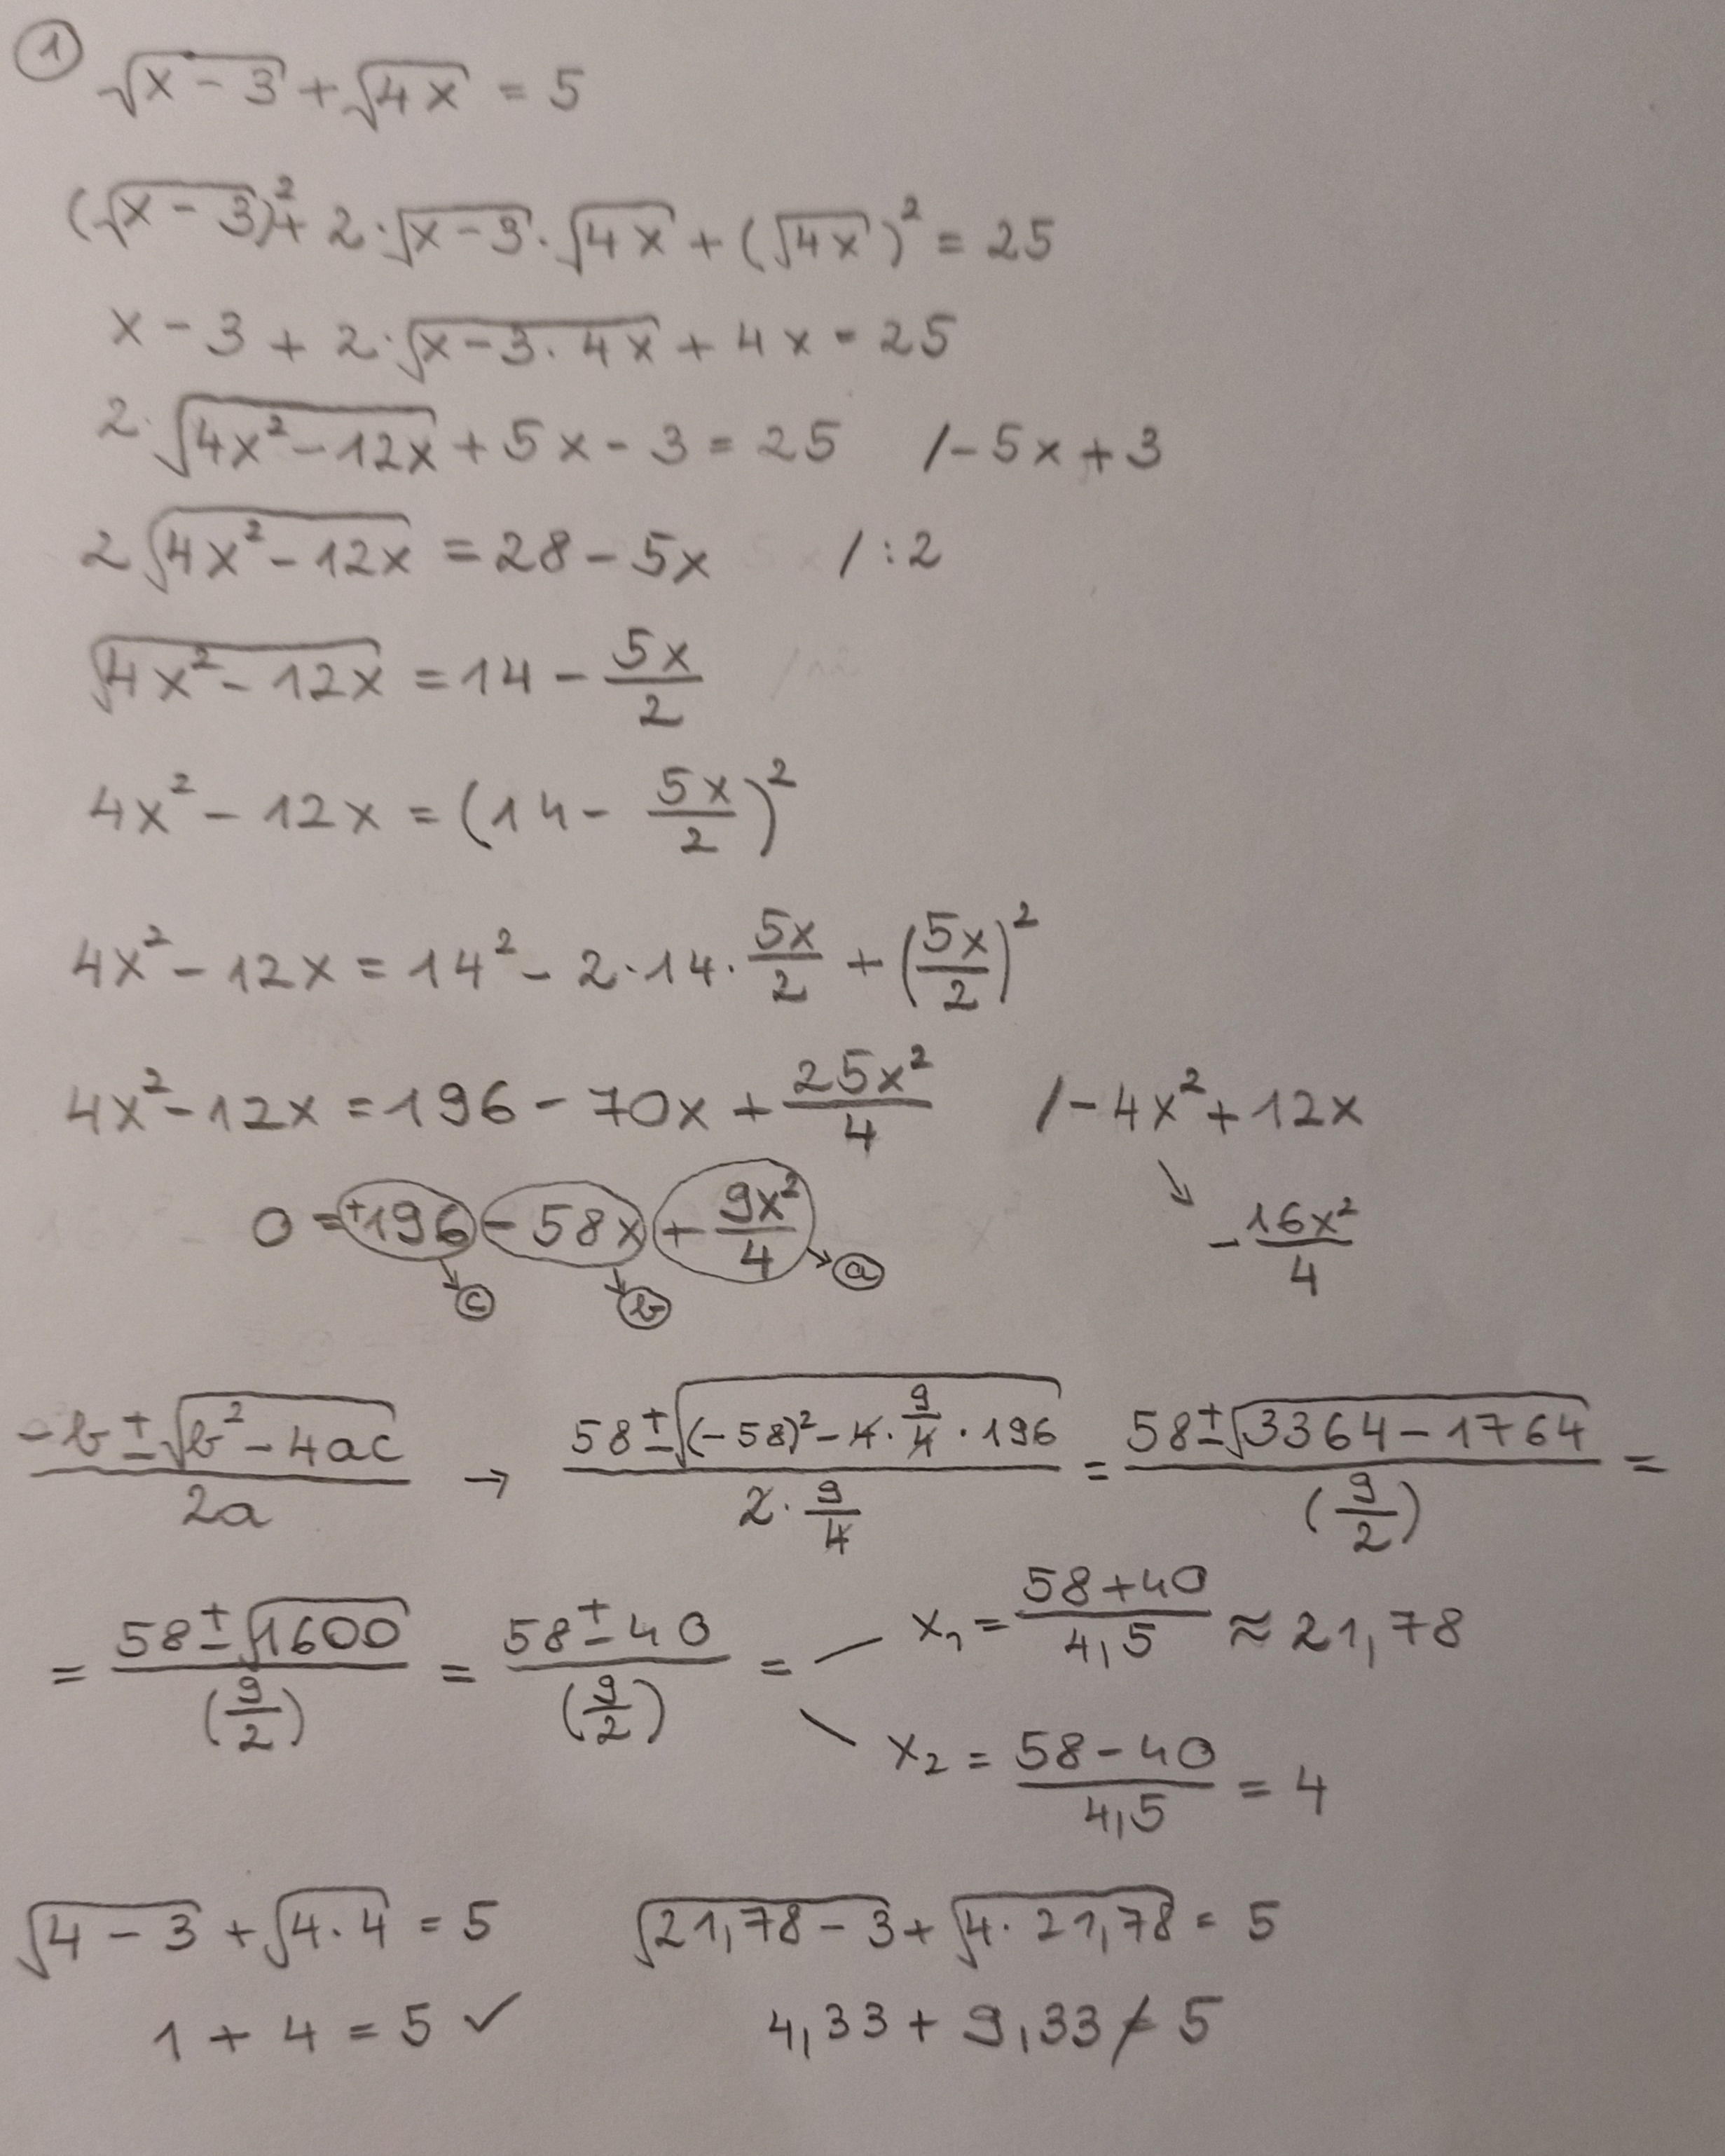 ① √(x-3) + √(4x) = 5
(√(x-3))² + 2·√(x-3)·√(4x) + (√(4x))² = 25
x - 3 + 2·√(x-3·4x) + 4x = 25
2·√(4x²-12x) + 5x - 3 = 25 /-5x+3
2√(4x²-12x) = 28 - 5x /:2
√(4x²-12x) = 14 - 5x/2
4x² - 12x = (14 - 5x/2)²
4x² - 12x = 14² - 2·14·5x/2 + (5x/2)²
4x² - 12x = 196 - 70x + 25x²/4 /-4x²+12x
0 = +196 - 58x + 9x²/4 → ⓐ - 16x²/4
ⓒ ⓑ
(-b ± √(b²-4ac))/(2a) → (58 ± √((-58)²-4·9/4·196))/(2·9/4) = (58 ± √(3364-1764))/(9/2) =
= (58 ± √1600)/(9/2) = (58 ± 40)/(9/2) = x₁ = (58+40)/4,5 ≈ 21,78
x₂ = (58-40)/4,5 = 4
√(4-3) + √(4·4) = 5 √(21,78-3) + √(4·21,78) = 5
1 + 4 = 5 ✓ 4,33 + 9,33 ≠ 5